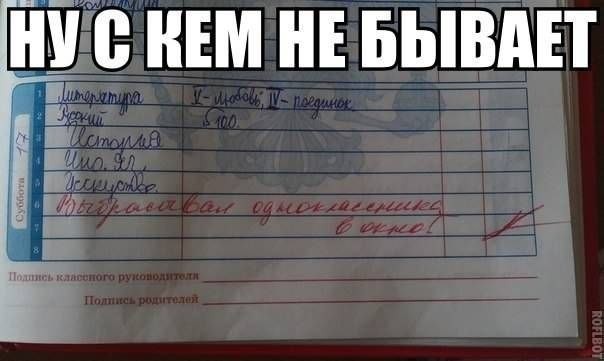 НУ С КЕМ НЕ БЫВАЕТ
1 Литература V- любовь, IV- поединок
2 Русский § 100
3 История
4 Ино. яз.
5 Исскуство
6 Выбрасывал одноклассника
7 в окно!
8
Суббота 17
Подпись классного руководителя
Подпись родителей
ROFLBOT